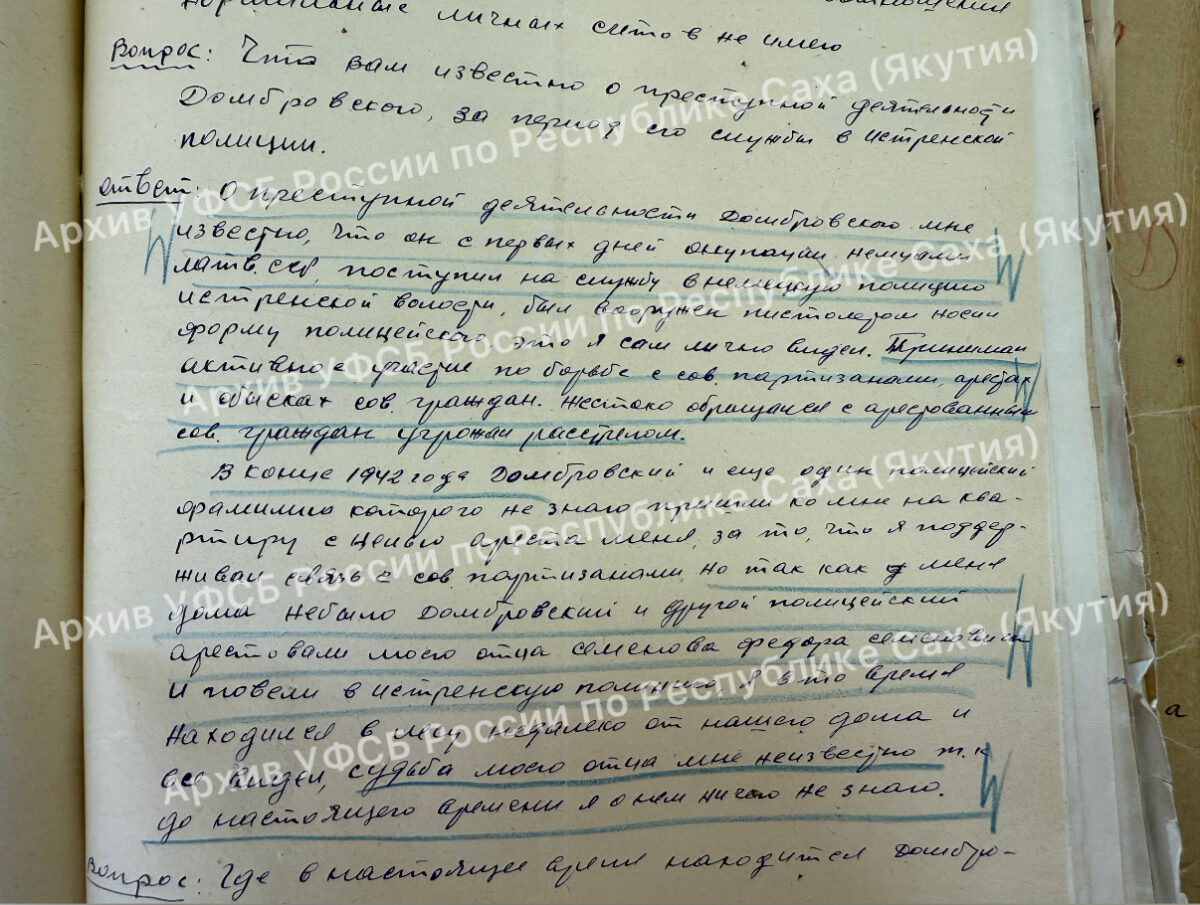 нормальные личных счетов не имею
Вопрос: Что вам известно о преступной деятельности
Домбровского, за период его службы в Истренской
полиции.
Ответ: О преступной деятельности Домбровского мне
известно, что он с первых дней окупации немцами
Латв. ССР, поступил на службу в немецкую полицию
истренской волости, был вооружен пистолетом носил
форму полицейского это я сам лично видел. Принимал
активное участие по борьбе с сов. партизанами, арестах
и обысках сов. граждан. Жестоко обращался с арестованными
сов. граждан угрожал расстрелом.
В конце 1942 года Домбровский и еще один полицейский
фамилию которого не знаю пришли ко мне на ква-
ртиру с целью ареста меня, за то, что я поддер-
живал связь с сов партизанами, но так как у меня
дома небыло Домбровский и другой полицейский
арестовали моего отца Семенова Федора Семеновича
и повели в истренскую полицию, я в то время
находился в лесу недалеко от нашего дома и
все видел, судьба моего отца мне неизвестно т.к
до настоящего времени я о нем ничего не знаю.
Вопрос: Где в настоящее время находится Домбро-
а
Архив УФСБ России по Республике Саха (Якутия)
Архив УФСБ России по Республике Саха (Якутия)
Архив УФСБ России по Республике Саха (Якутия)
Архив УФСБ России по Республике Саха (Якутия)